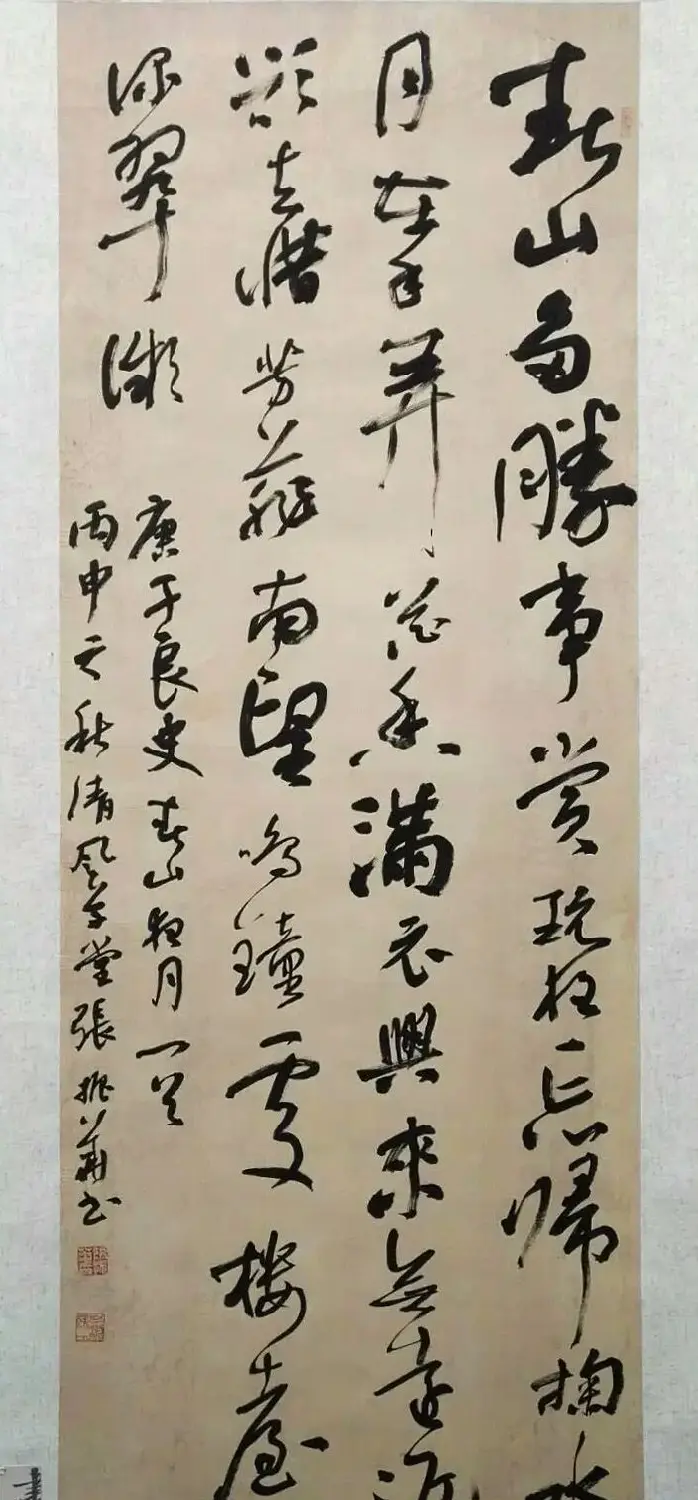 春山多勝事賞玩夜忘歸掬水
月在手弄花香滿衣興來無遠近
欲去惜芳菲南望鳴鐘處樓臺
深翠微
唐于良史春山夜月一首
丙申之秋清風草堂張振華書